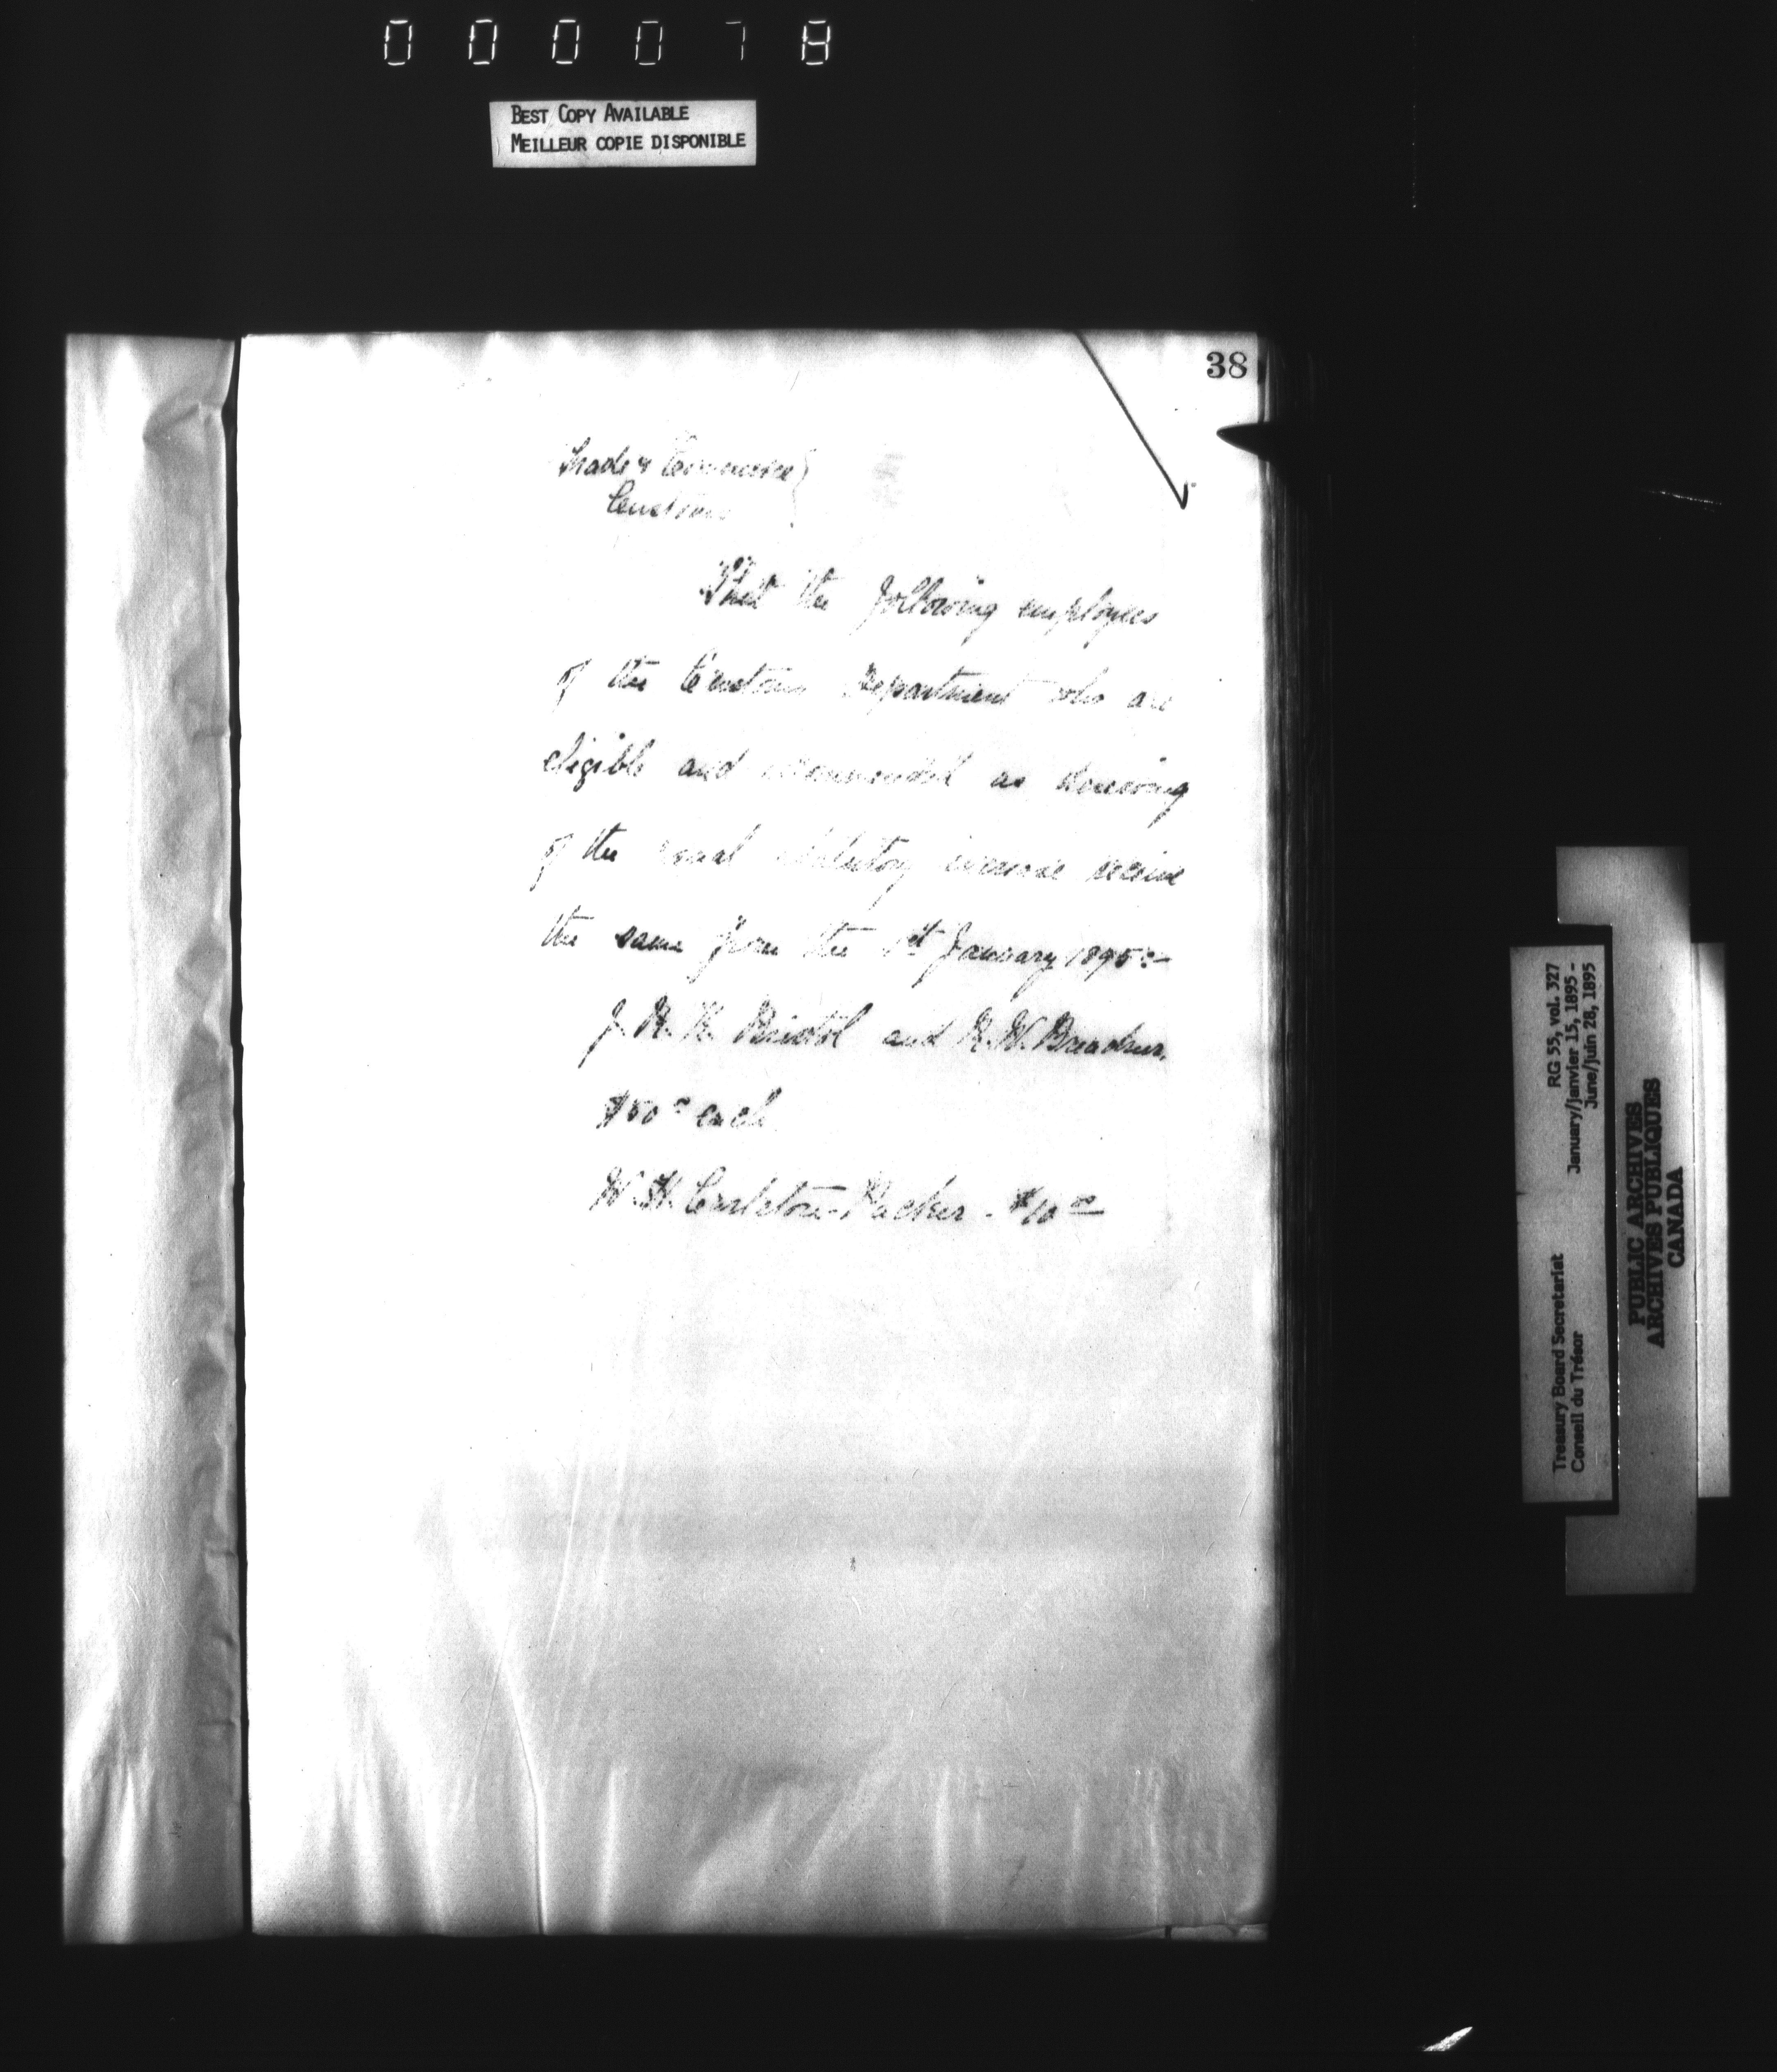 000078
BEST COPY AVAILABLE
MEILLEUR COPIE DISPONIBLE
38
Trade & Commerce
Customs
That the following employees
of the Customs Department who are
eligible and recommended as deserving
of the usual statutory increase receive
the same from the 1st January 1895:-
J. and
$50 00 each
W. H. Carleton Packer - $10 00
RG 55, vol. 327
January/janvier 15, 1895 -
June/juin 28, 1895
Treasury Board Secretariat
Conseil du Trésor
PUBLIC ARCHIVES
ARCHIVES PUBLIQUES
CANADA